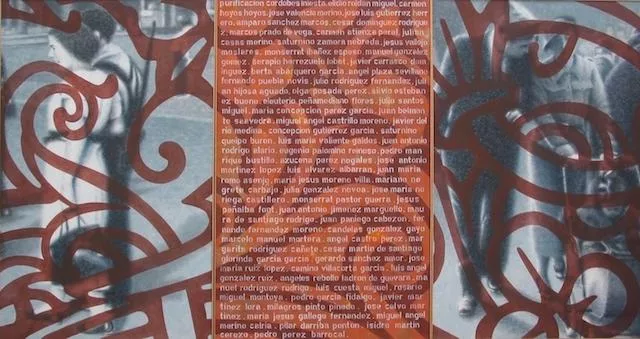 purificacion cordobes iniesta. elicio roldan miguel. carmen
hoyos hoyos. jose valencia merino. jose luis gutierrez herr
ero. amparo sanchez marcos. cesar dominguez rodrigue
z. marcos prado de vega. carmen atienza peral. julian
casas merino. saturnino zamora nebreda. jesus vallejo
mesleres. monserrat ibañez espeso. manuel gonzalez
gomez. serapio herrezuelo lobat. javier carrasco dom
inguez. berta abarquero garcia. angel plaza sevillano
fernando puebla novis. julio rodriguez fernandez. juli
an hijosa aguado. olga posada perez. silvio esteban
ez bueno. eleuterio peñamediano flores. julio santos
miguel. maria concepcion perez garcia. juan belmon
te saavedra. miguel angel castrillo moreno. javier del
rio medina. concepcion gutierrez garcia. saturnino
queipo buron. luis maria valiente galdos. juan antonio
rodrigo alario. eugenio palomino reinoso. pedro man
rique bustillo. azucena perez nogales. jose antonio
martinez lopez. luis alvarez albarran. juan maria
romo asenjo. maria jesus moreno villa. mariano ne
grete carbajo. julia gonzalez novoa. jose maria no
riega castillero. monserrat pastor guerra. jesus
peñalba font. juan antonio jimenez marguello. mau
ra de santiago rodrigo. juan paniego cabezon. fer
nando fernandez moreno. candelas gonzalez gayo
marcelo manuel mortera. angel castro perez. mar
garita rodriguez cañete. cesar martin de santiago
glorinda garcia garcia. gerardo sanchez amor. jose
maria ruiz lopez. camino villacorta garcia. luis angel
gonzalez ruiz. angeles rebello ladron de guevara. ma
nuel rodriguez rodrigo. luis cuesta miguel. rosario
miguel montoya. pedro garcia fidalgo. javier mar
tinez lera. milagros pinto pinedo. jose calvo mar
tinez. maria jesus gallego fernandez. miguel angel
merino calria. pilar darriba ponton. isidro martin
cerezo. pedro perez barrocal.